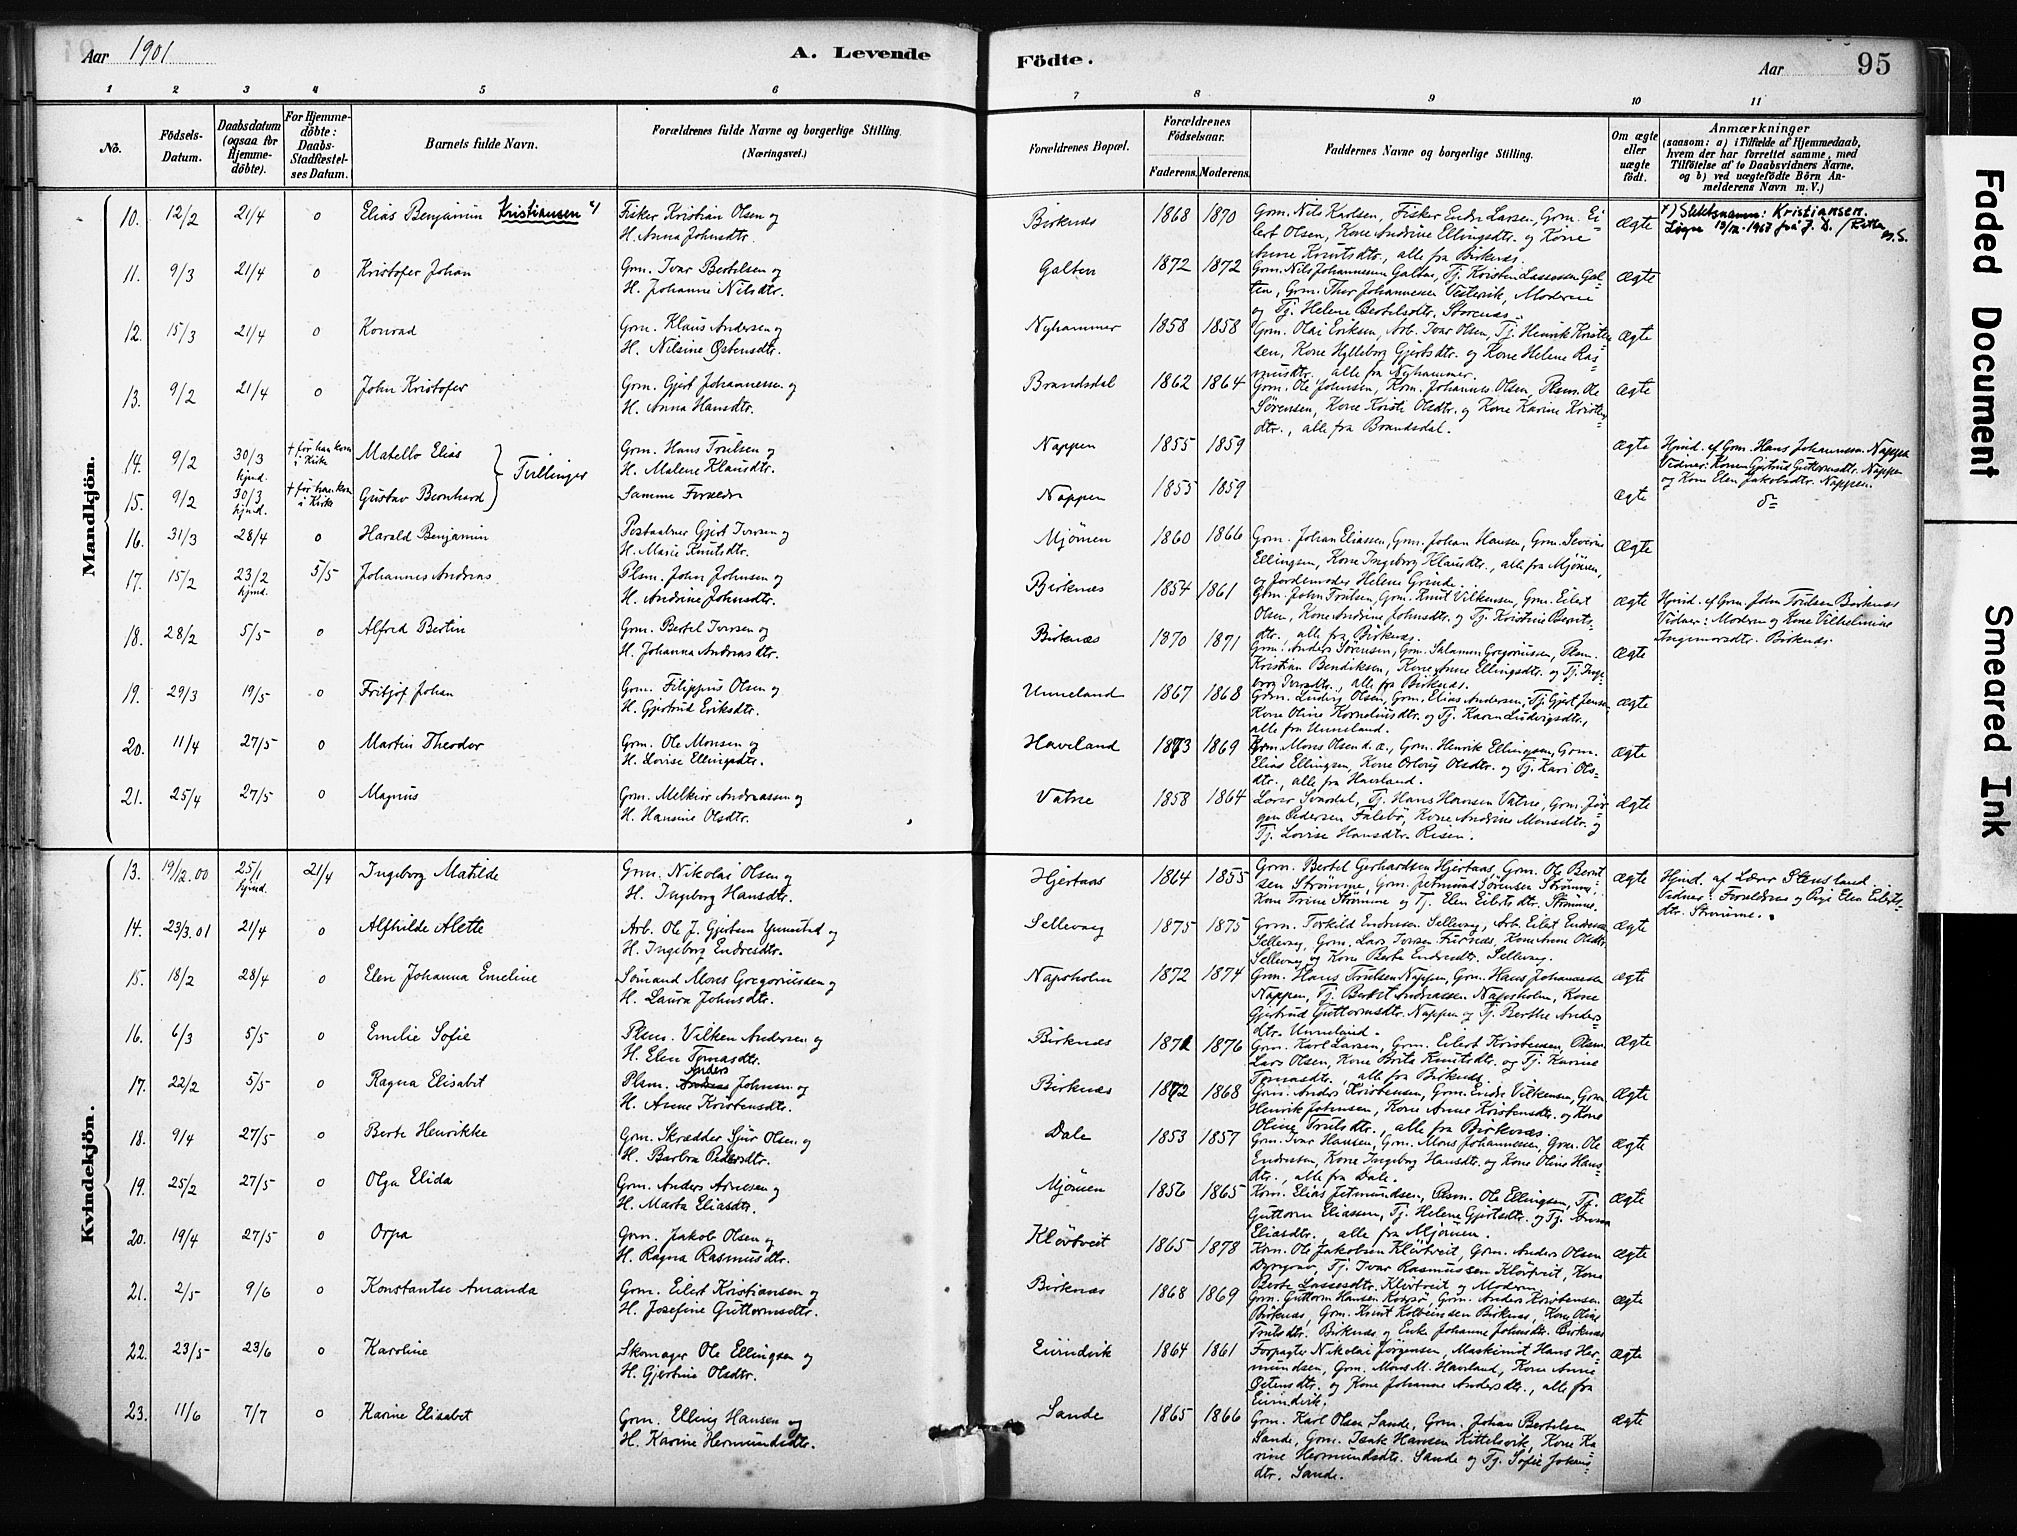 Aar 1901
A. Levende
Födte.
Aar
95
1 2 3 4 5 6 7 8 9 10 11
No.
Födsels-
Datum.
Daabsdatum
(ogsaa for
Hjemme-
döbte).
For Hjemme-
döbte:
Daabs-
Stadfæstel-
ses Datum.
Barnets fulde Navn.
Forældrenes fulde Navne og borgerlige Stilling.
(Næringsvei.)
Forældrenes Bopæl.
Forældrenes
Födselsaar.
Faderens. Moderens.
Faddernes Navne og borgerlige Stilling.
Om ægte
eller
uægte
födt.
Anmærkninger
(saasom: a) i Tilfælde af Hjemmedaab,
hvem der har forrettet samme, med
Tilföielse af to Daabsvidners Navne,
og b) ved uægtefödte Börn An-
melderens Navn m. V.)
Mandkjön.
10. 12/2 21/4 0 Elias Benjamin Kristiansen
Fisker Kristian Olsen og
H. Anna Johnsdtr.
Birknæs 1868 1870
Grm. Nils Karlsen, Fisker Endre Larsen, Grm. Ei-
lert Olsen, Kone Andrine Ellingsdtr. og Kone
Anne Knutsdtr., alle fra Birknæs.
Ægte
Slektsnamn: Kristiansen.
11. 9/3 21/4 0 Kristofer Johan
Grm. Ivar Bertilsen og
H. Johanne Nilsdtr.
Galten 1872 1872
Grm. Nils Johannesen Galten, Tj. Kristen Lassesen Gal-
ten, Grm. Thor Johannesen Vestervik, Moderen
og Tj. Helene Bertilsdtr. Storenæs.
Ægte
12. 15/3 21/4 0 Konrad
Grm. Klaus Andersen og
H. Nilsine Østensdtr.
Nyhammer 1858 1858
Grm. Olai Eriksen, Arb. Ivar Olsen, Tj. Henrik Kristen-
sen, Kone Hylleborg Gjertsdtr. og Kone Helene Ras-
musdtr. alle fra Nyhammer.
Ægte
13. 9/2 21/4 0 John Kristofer
Grm. Gjert Johannessen og
H. Anna Hansdtr.
Brandsdal 1862 1864
Grm. Ole Johnsen, Grm. Johannes Olsen, Plsm. Ole
Sørensen, Kone Kristi Olsdtr. og Kone Karine Kristen-
dtr., alle fra Brandsdal.
Ægte
14. 9/2 30/3 hjmd. † før han kom i Kirke Matello Elias
Tvillinger
Grm. Hans Trulsen og
H. Malene Klausdtr.
Nappen 1855 1859 Ægte
Hjmd. af Grm. Hans Johannessen Nappen
Vidner: Konen Gjertrud Guttormsdtr. Nappen
og Kone Elen Jakobsdtr. Nappen.
15. 9/2 30/3 hjmd. † før han kom i Kirke Gustav Bernhard
Samme Forældre
Nappen 1855 1859 Ægte
16. 31/3 28/4 0 Harald Benjamin
Postaabner Gjert Iversen og
H. Marie Knutsdtr.
Mjömen 1860 1866
Grm. Johan Eliassen, Grm. Johan Hansen, Grm. Severin
Ellingsen, Kone Ingeborg Klausdtr., alle fra Mjömen,
og Jordemoder Helene Grinde.
Ægte
17. 15/2 23/2 hjmd. 5/5 Johannes Andreas
Plsm. John Johnsen og
H. Andrine Johnsdtr.
Birknæs 1854 1861
Grm. John Trulsen, Grm. Knut Vilkensen, Grm. Eilert
Olsen, Kone Andrine Johnsdtr. og Tj. Kristine Berits-
dtr., alle fra Birknæs.
Ægte
Hjmd. af Grm. John Trulsen Birknæs
Vidner: Modren og Kone Vilhelmine
Ingemarsdtr. Birknæs.
18. 28/2 5/5 0 Alfred Bertin
Grm. Bertel Iversen og
H. Johanna Andreasdtr.
Birknæs 1870 1871
Grm. Anders Sørensen, Grm. Salamon Gregoriussen, Plsm.
Kristian Bendiksen, Kone Anne Ellingsdtr. og Tj. Inge-
borg Iversdtr., alle fra Birknæs.
Ægte
19. 29/3 19/5 0 Fritjof Johan
Grm. Filippus Olsen og
H. Gjertrud Eriksdtr.
Unneland 1867 1868
Grm. Ludvig Olsen, Grm. Elias Andersen, Tj. Gjert Jensen,
Kone Oline Korneliusdtr. og Tj. Karen Ludvigsdtr.,
alle fra Unneland.
Ægte
20. 11/4 27/5 0 Martin Theodor
Grm. Ole Monsen og
H. Lovise Ellingsdtr.
Haveland 1873 1869
Grm. Mons Olsen d. æ., Grm. Henrik Ellingsen, Grm.
Elias Ellingsen, Kone Orlaug Olsdtr. og Tj. Kari Ols-
dtr., alle fra Haveland.
Ægte
21. 25/4 27/5 0 Magnus
Grm. Melkior Andreassen og
H. Hansine Olsdtr.
Vatne 1858 1864
Lærer Svardal, Tj. Hans Hansen Vatne, Grm. Jör-
gen Pedersen Falebø, Kone Andrine Monsdtr. og
Tj. Lovise Hansdtr. Risen.
Ægte
Kvindekjön.
13. 19/12.00 25/1 hjmd. 21/4 Ingeborg Matilde
Grm. Nikolai Olsen og
H. Ingeborg Hansdtr.
Hjertaas 1864 1855
Grm. Bertel Gerhardsen Hjertaas, Grm. Ole Bernt-
sen Strömme, Grm. Jetmund Sørensen Strömme,
Kone Trine Strömme og Tj. Elen Eilertsdtr. Strömme.
Ægte
Hjmd. af Lærer Stensland.
Vidner: Forældrene og Pige Elen Eilerts-
dtr. Strömme.
14. 23/3.01 21/4 0 Alfhilde Alette
Arb. Ole J. Gjertsen Ynnestad og
H. Ingeborg Endresdtr.
Sellevaag 1875 1875
Grm. Torkild Endresen Sellevaag, Arb. Eilert Endresen
Sellevaag, Grm. Lars Iversen Furenæs, Kone Anne Olsdtr.
Sellevaag og Kone Berta Endresdtr. Sellevaag.
Ægte
15. 18/2 28/4 0 Elen Johanna Emeline
Sömand Mons Gregoriussen og
H. Laura Johnsdtr.
Napsholm 1872 1874
Grm. Hans Trulsen Nappen, Grm. Hans Johannessen
Nappen, Tj. Bertel Andreassen Napsholm, Kone
Gjertrud Guttormsdtr. Nappen og Tj. Berthe Anders-
dtr. Unneland.
Ægte
16. 6/3 5/5 0 Emilie Sofie
Plsm. Vilken Andersen og
H. Elen Tomasdtr.
Birknæs 1871 1876
Grm. Karl Larsen, Grm. Eilert Kristensen, Plsm.
Lars Olsen, Kone Brita Knutsdtr. og Tj. Karine
Tomasdtr., alle fra Birknæs.
Ægte
17. 22/2 5/5 0 Ragna Elisabet
Plsm. Anders Johnsen og
H. Anne Kristensdtr.
Birknæs 1872 1868
Grm. Anders Kristensen, Grm. Endre Vilkensen, Grm.
Henrik Johnsen, Kone Anne Kristensdtr. og Kone
Oline Trulsdtr., alle fra Birknæs.
Ægte
18. 9/4 27/5 0 Berte Henrikke
Grm. Skrædder Sjur Olsen og
H. Barbra Pedersdtr.
Dale 1853 1857
Grm. Ivar Hansen, Grm. Mons Johannessen, Grm. Ole
Endresen, Kone Ingeborg Hansdtr. og Kone Oline Hans-
dtr., alle fra Dale.
Ægte
19. 25/2 27/5 0 Olga Elida
Grm. Anders Arnesen og
H. Marta Eliasdtr.
Mjömen 1856 1865
Grm. Elias Jetmundsen, Plsm. Ole Ellingsen, Tj.
Guttorm Eliassen, Tj. Helene Gjertsdtr. og Tj.
Eliasdtr., alle fra Mjömen.
Ægte
20. 19/4 27/5 0 Orpa
Grm. Jakob Olsen og
H. Ragna Rasmusdtr.
Klövtveit 1865 1878
Grm. Ole Jakobsen Klövtveit, Grm. Anders Olsen
Dyrgrav, Tj. Ivar Rasmussen Klövtveit, Kone
Berte Lassesdtr. Klövtveit og Moderen.
Ægte
21. 2/5 9/6 0 Konstantse Amanda
Grm. Eilert Kristiansen og
H. Josefine Guttormsdtr.
Birknæs 1868 1869
Grm. Guttorm Hansen Kversø, Grm. Anders Kristensen
Birknæs, Grm. Knut Kolbeinsen Birknæs, Kone Oline
Trulsdtr. Birknæs og Enke Johanne Johnsdtr. Birknæs
Ægte
22. 23/5 23/6 0 Karoline
Skomager Ole Ellingsen og
H. Gjertine Olsdtr.
Eivindvik 1864 1861
Forpagter Nikolai Jörgensen, Maskinist Hans Her-
mundsen, Grm. Mons M. Haveland, Kone Anne
Østensdtr. og Kone Johanne Andersdtr., alle fra
Eivindvik.
Ægte
23. 11/6 7/7 0 Karine Elisabet
Grm. Elling Hansen og
H. Karine Hermundsdtr.
Sande 1865 1866
Grm. Karl Olsen Sande, Grm. Johan Bertelsen
Sande, Grm. Isak Hansen Kittelsvik, Kone Ka-
rine Hermundsdtr. Sande og Tj. Sofie Johans-
dtr. Sande.
Ægte
Faded Document
Smeared Ink